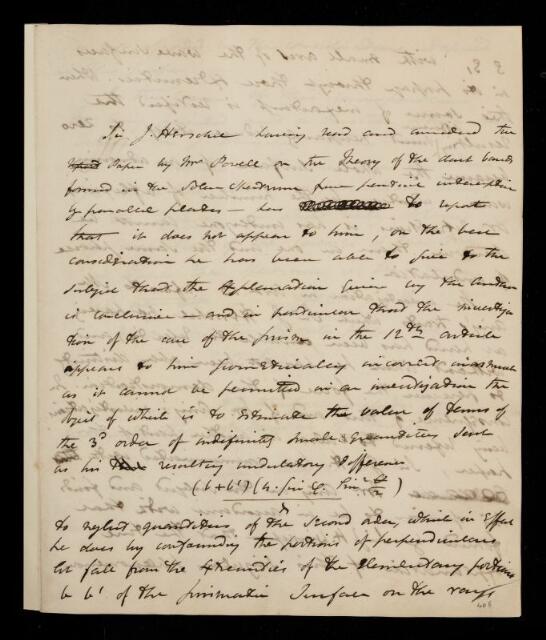 Sir J. Herschel having read and considered the
Paper by Mr Powell on the Theory of the dark bands
formed in the Solar Spectrum from partial interception
by parallel plates - has to report
that it does not appear to him, on the best
consideration he has been able to give to the
subject that the explanation given by the Author
is conclusive - and in particular that the investiga
tion of the case of the prism in the 12th article
appears to him geometrically incorrect inasmuch
as it cannot be permitted in an investigation the
object of which is to estimate the value of terms of
the 3d order of indefinitely small quantities such
as his resulting undulatory difference
(b+b') (4. Sin
to neglect quantities of the second order, which in effect
he does by confounding the portions of perpendiculars
let fall from the extremities of the elementary portions
b b' of the prismatic Surface on the rays
408